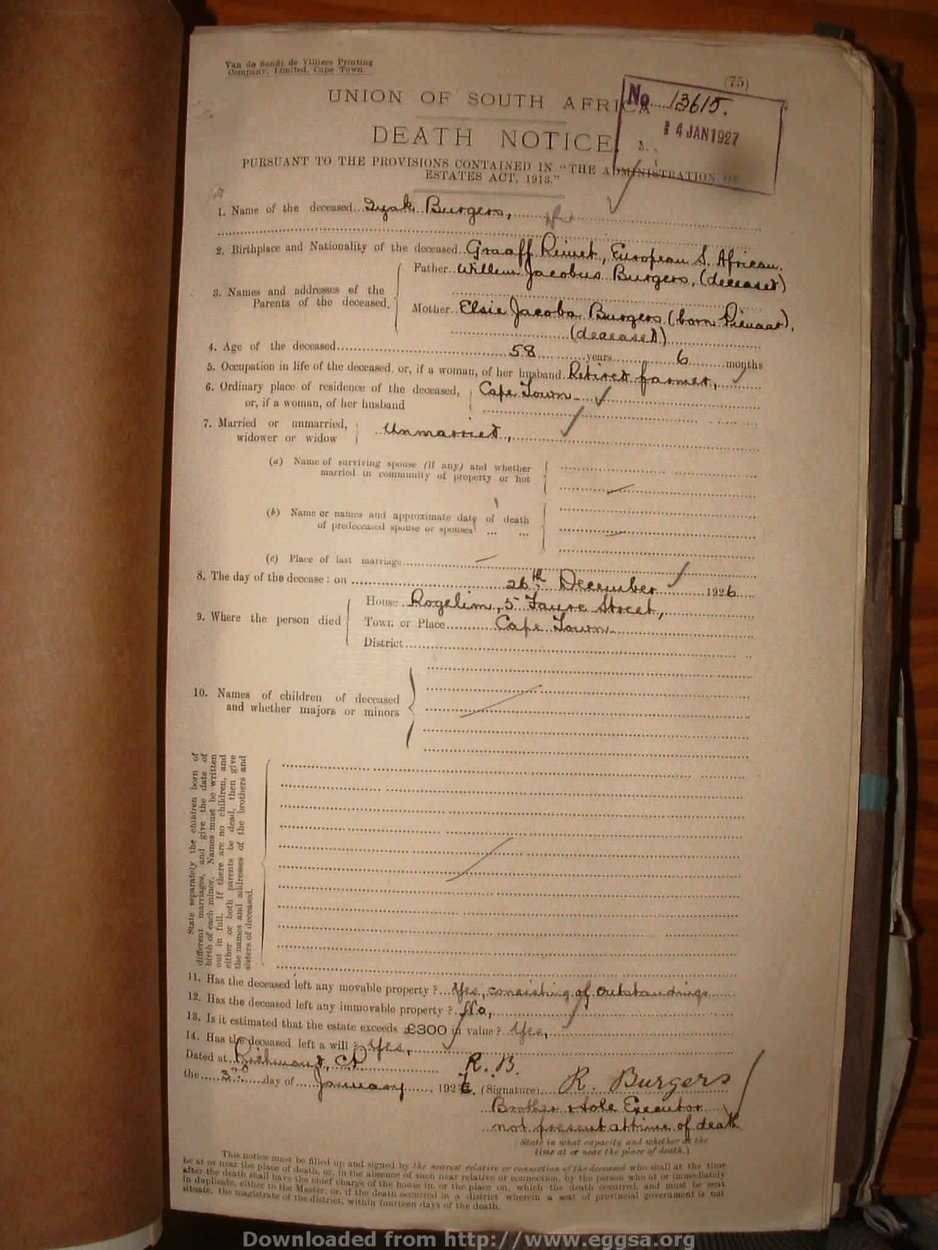 Van de Sandt de Villiers Printing
Company, Limited, Cape Town.
(75)
UNION OF SOUTH AFRICA
No. 13615.
4 JAN 1927
DEATH NOTICE
PURSUANT TO THE PROVISIONS CONTAINED IN "THE ADMINISTRATION OF
ESTATES ACT, 1913."
1. Name of the deceased Izak Burgers,
2. Birthplace and Nationality of the deceased Graaff Reinet, European S. African.
3. Names and addresses of the Parents of the deceased.
Father Willem Jacobus Burgers, (deceased)
Mother Elsie Jacoba Burgers (born Pienaar),
(deceased)
4. Age of the deceased 58 years 6 months
5. Occupation in life of the deceased, or, if a woman, of her husband Retired farmer,
6. Ordinary place of residence of the deceased, Cape Town
or, if a woman, of her husband
7. Married or unmarried, Unmarried,
widower or widow
(a) Name of surviving spouse (if any) and whether
married in community of property or not
(b) Name or names and approximate date of death
of predeceased spouse or spouses
(c) Place of last marriage
8. The day of the decease: on 26th December 1926
9. Where the person died
House Rogelim, 5 Faure Street,
Town or Place Cape Town
District
10. Names of children of deceased
and whether majors or minors
State separately the children born of
different marriages, and give the date of
birth of each minor. Names must be written
out in full. If there are no children, and
either or both parents be dead, then give
the names and addresses of the brothers and
sisters of deceased.
11. Has the deceased left any movable property? Yes, consisting of outstandings
12. Has the deceased left any immovable property? No,
13. Is it estimated that the estate exceeds £300 in value? Yes,
14. Has the deceased left a will? Yes,
Dated at Richmond, CP R. B.
the 3rd day of January 1927. (Signature) R. Burgers
Brother & Sole Executor
not present at time of death
State in what capacity and whether at the
time at or near the place of death.)
This notice must be filled up and signed by the nearest relative or connection of the deceased who shall at the time
be at or near the place of death, or, in the absence of such near relative or connection, by the person who at or immediately
after the death shall have the chief charge of the house in, or the place on, which the death occurred, and must be sent
in duplicate, either to the Master, or, if the death occurred in a district wherein a seat of provincial government is not
situate, the magistrate of the district, within fourteen days of the death.
Downloaded from http://www.eggsa.org